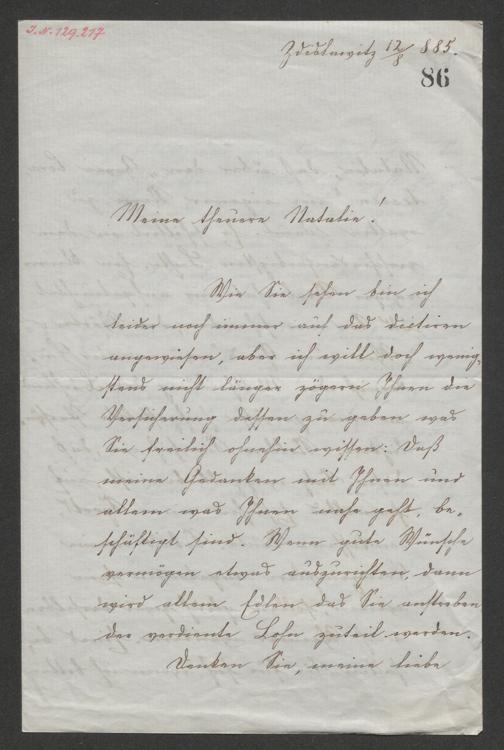 I.N. 129.217
Zdislawitz 12/8 885.
86
Meine theuere Natalie!
Wie Sie sehen bin ich
leider noch immer auf das dictiren
angewiesen, aber ich will doch wenig-
stens nicht länger zögern Ihnen die
Versicherung dessen zu geben was
Sie freilich ohnehin wissen: Daß
meine Gedanken mit Ihnen und
allem was Ihnen nahe geht, be-
schäftigt sind. Wenn gute Wünsche
vermögen etwas auszurichten, dann
wird allem Edlen das Sie anstreben
der verdiente Lohn zuteil werden.
Denken Sie, meine liebe